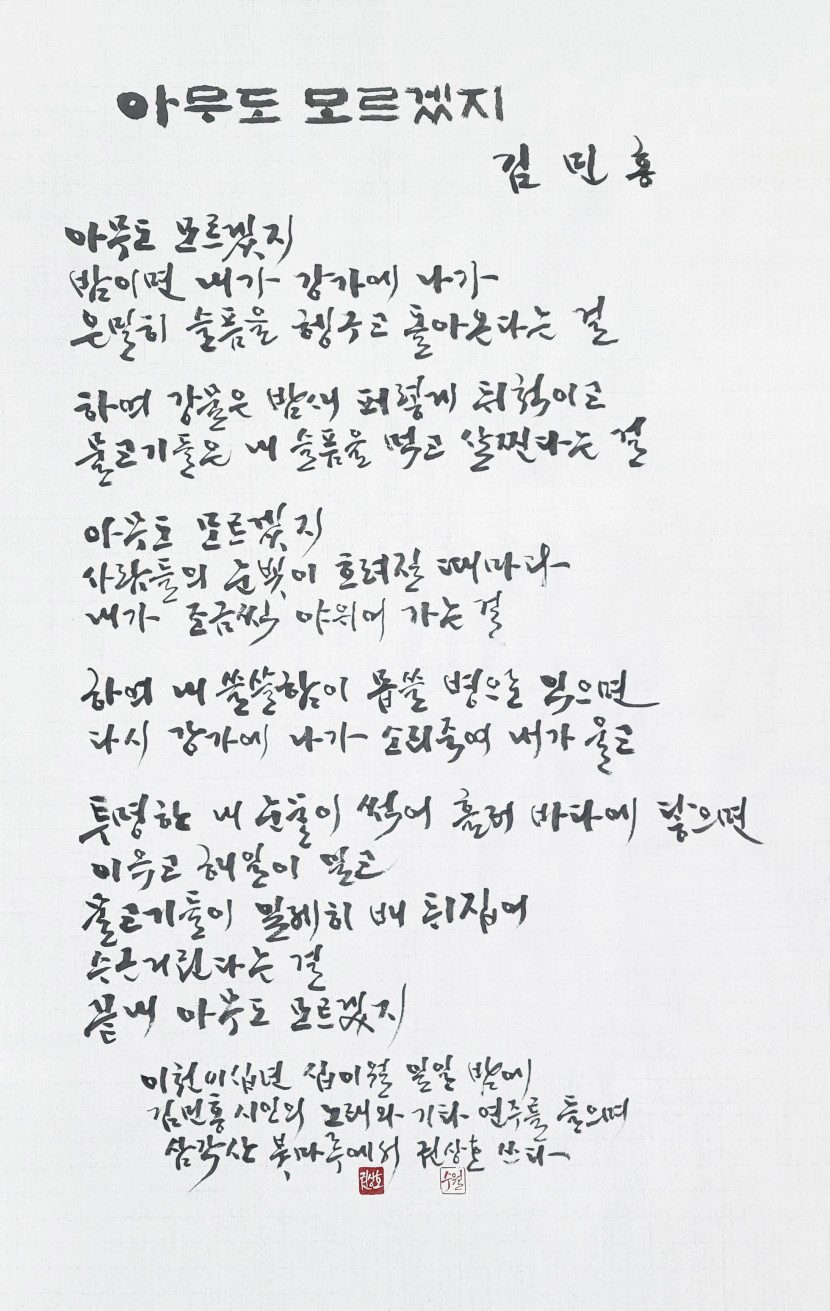 아무도 모르겠지
김민홍
아무도 모르겠지
밤이면 내가 강가에 나가
은밀히 슬픔을 헹구고 돌아온다는 걸
하여 강물은 밤새 퍼렇게 뒤척이고
물고기들은 내 슬픔을 먹고 살찐다는 걸
아무도 모르겠지
사람들의 눈빛이 흐려질 때마다
내가 조금씩 야위어 가는 걸
하여 내 쓸쓸함이 몹쓸 병으로 익으면
다시 강가에 나가 소리죽여 내가 울고
투명한 내 눈물이 썩어 흘러 바다에 닿으면
이윽고 해일이 일고
물고기들이 일제히 배 뒤집어
수근거린다는 걸
끝내 아무도 모르겠지
이천이십년 십이월 일일 밤에
김민홍 시인의 노래와 기타 연주를 들으며
삼각산 붓마루에서 권상호 쓰다
권상호
수월